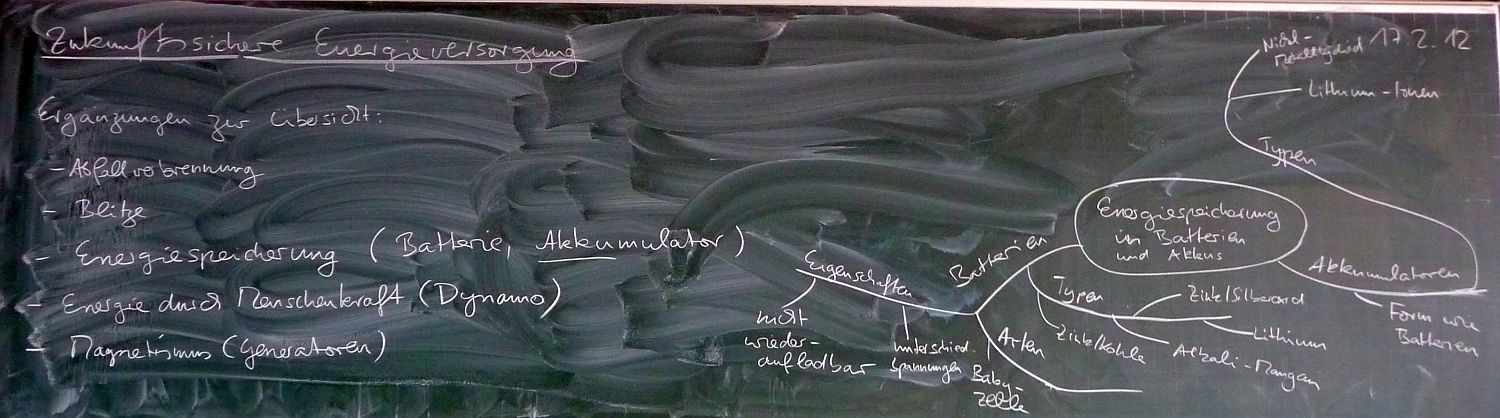 Zukunftssichere Energieversorgung
17.2.12
Ergänzungen zur Übersicht:
- Abfallverbrennung
- Blitze
- Energiespeicherung (Batterie, Akkumulator)
- Energie durch Menschenkraft (Dynamo)
- Magnetismus (Generatoren)
Energiespeicherung
in Batterien
und Akkus
Batterien
Eigenschaften
nicht
wieder-
aufladbar
unterschied.
Spannungen
Arten
Baby-
zelle
Typen
Zink/Kohle
Alkali-Mangan
Zink/Silberoxid
Lithium
Akkumulatoren
Form wie
Batterien
Typen
Lithium-Ionen
Nickel-
Metallhydrid